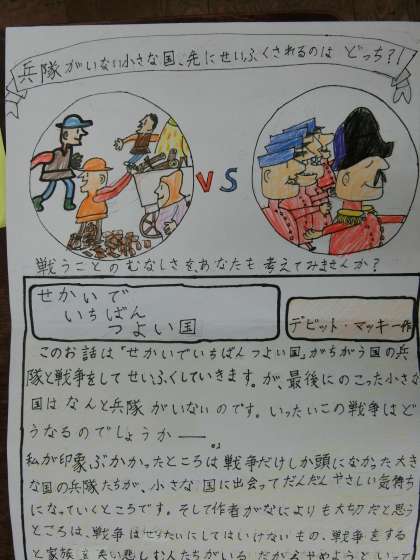 兵隊がいない小さな国、先にせいふくされるのは どっち?!
VS
戦うことのむなしさを、あなたも考えてみませんか?
せかいで
いちばん
つよい国
デビット・マッキー作
このお話は「せかいでいちばんつよい国」がちがう国の兵
隊と戦争をしてせいふくしていきます。が、最後にのこった小さな
国はなんと兵隊がいないのです。いったいこの戦争はど
うなるのでしょうか――。
私が印象ぶかかったところは戦争だけしか頭になかった大き
な国の兵隊たちが、小さな国に出会ってだんだんやさしい気持ち
になっていくところです。そして作者がなによりも大切だと思う
ところは、戦争はぜったいにしてはいけないもの、戦争をする
と家族を失い悲しむ人たちがいる